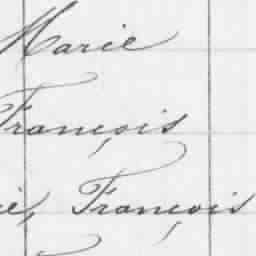 Marie
François
ie, François